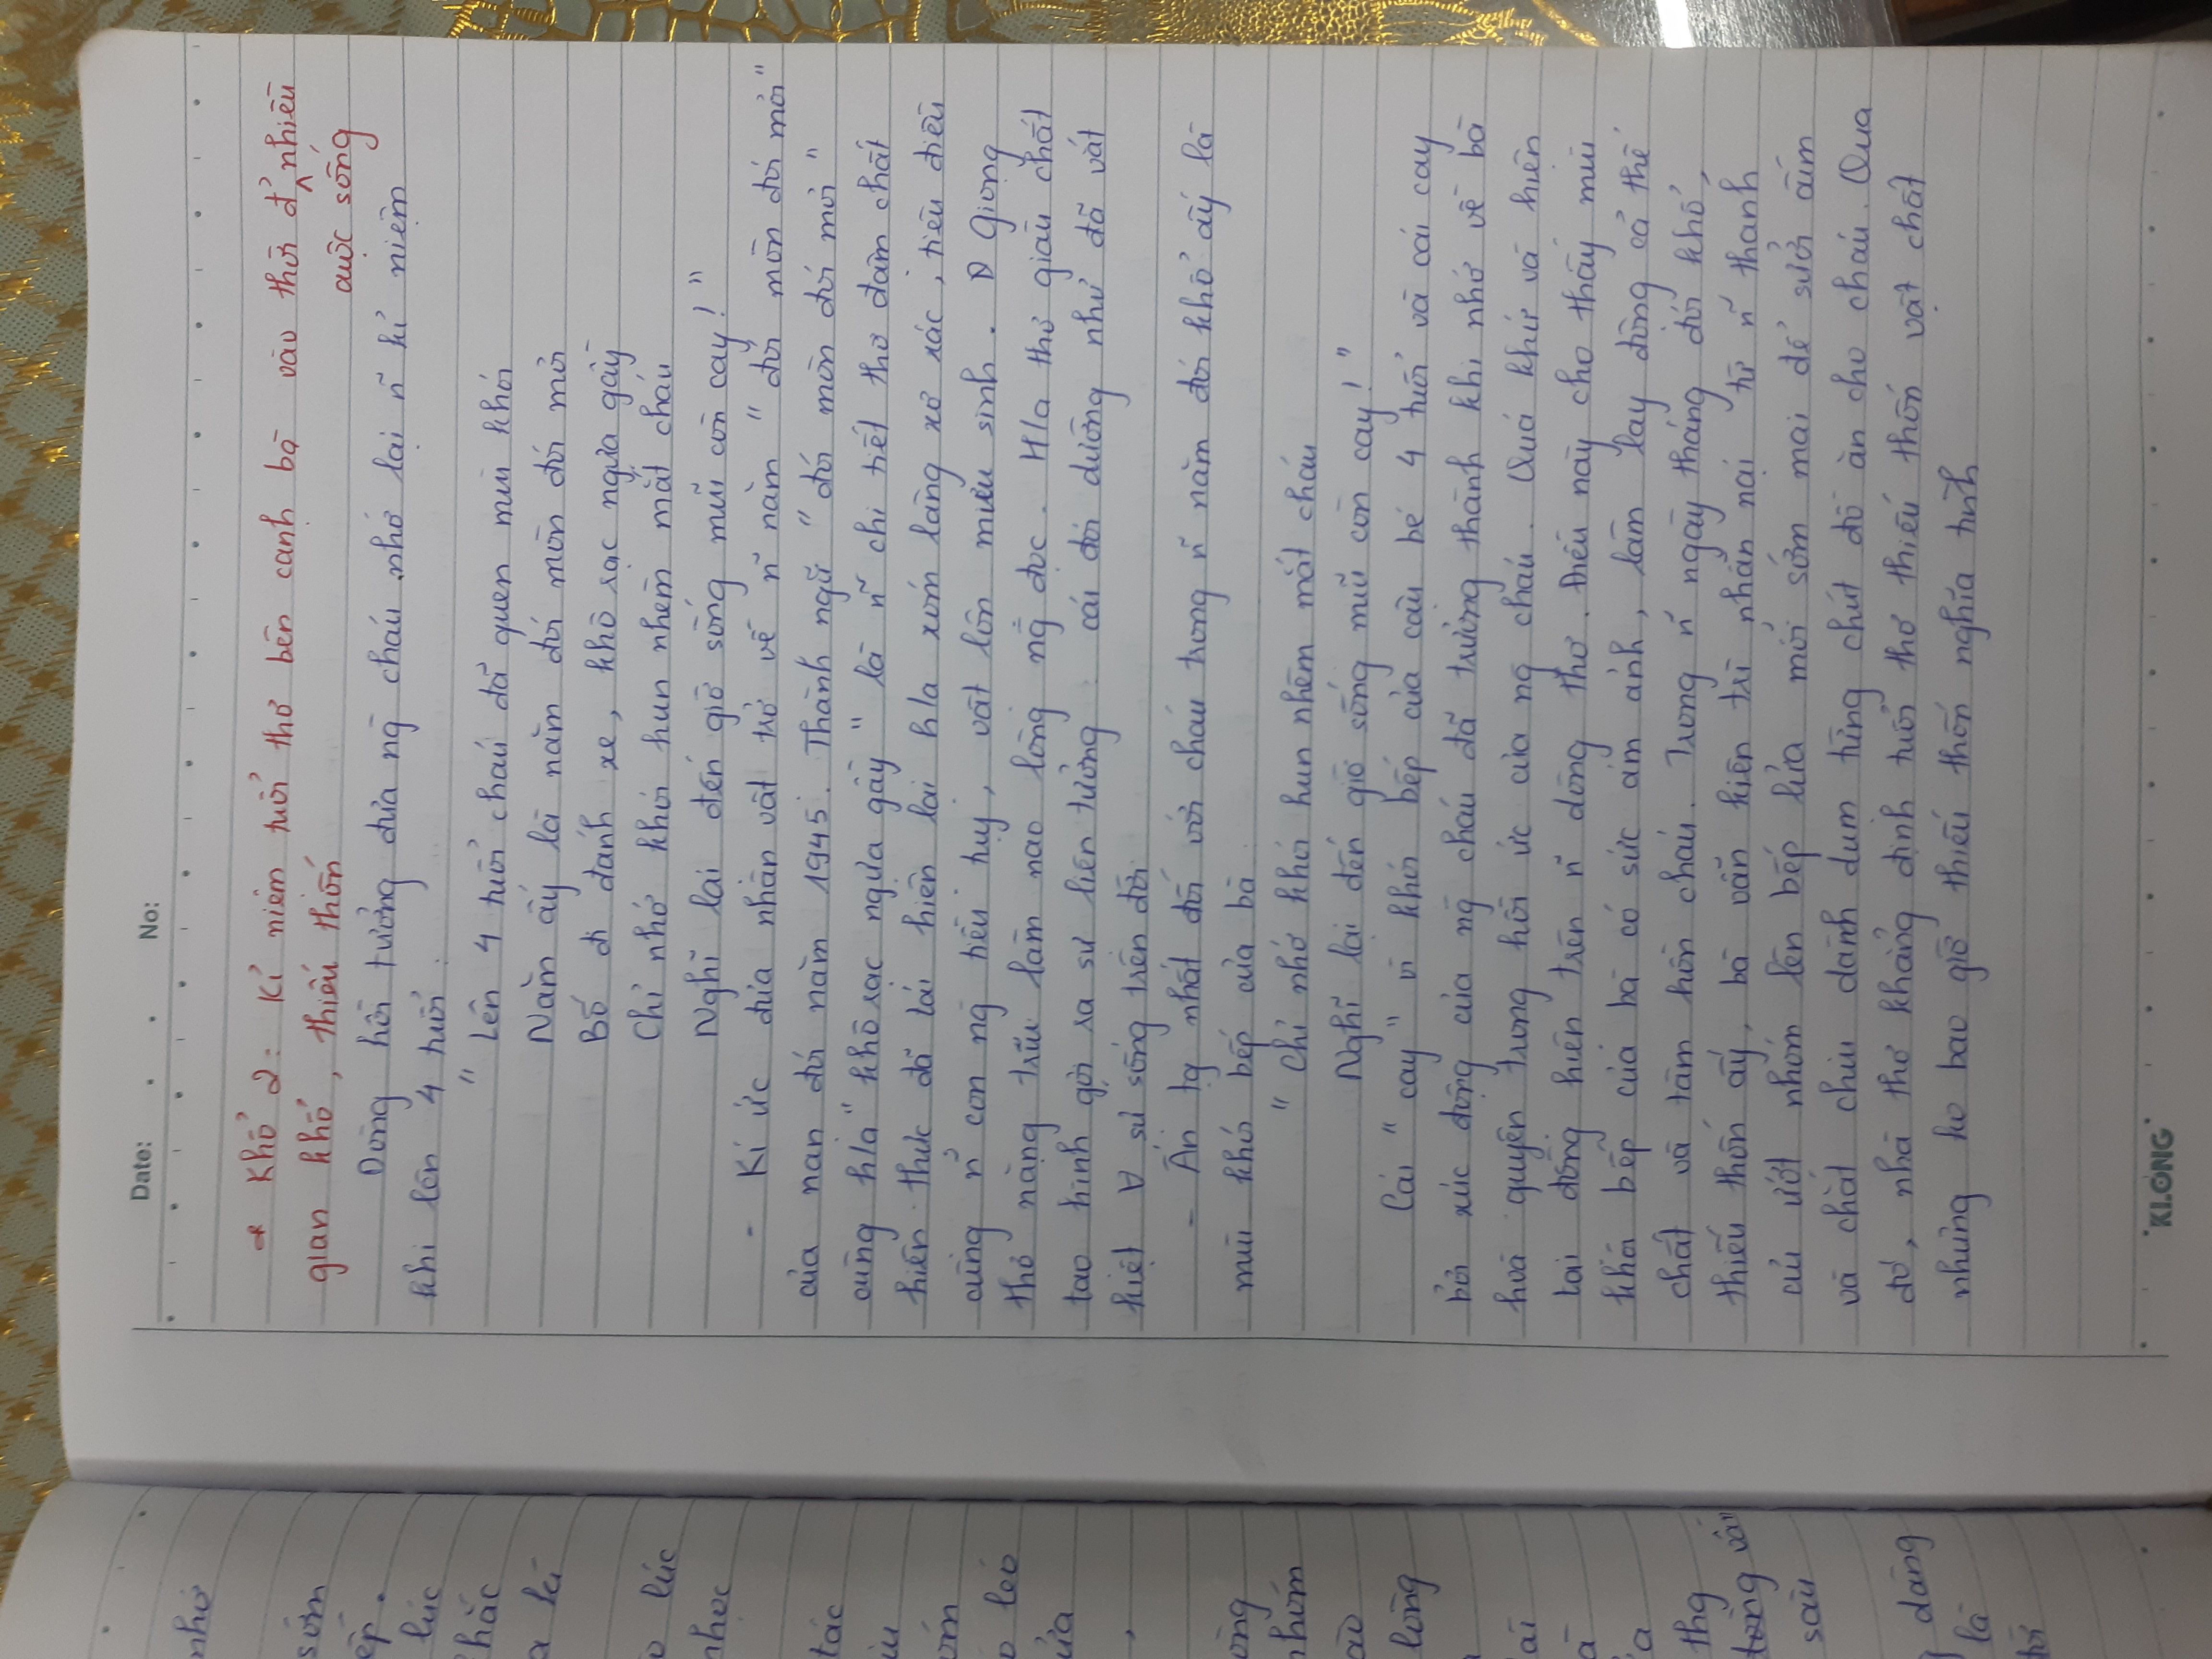 nhớ
sớm
ếp.
lúc
hắc
a kí
lúc
nhọc
tác
ửa
òng
nhóm
lòng
thg
sau
dáng
là
Date: . . No:
* Khổ 2: Kỉ niệm tuổi thơ bên cạnh bà vào thời đ' nhiều
cuộc sống
gian khó, thiếu thốn
Dòng hồi tưởng đưa ng cháu nhớ lại ñ kỉ niệm
khi lên 4 tuổi:
" Lên 4 tuổi cháu đã quen mùi khói
Năm ấy là năm đói mòn đói mỏi
Bố đi đánh xe, khô rạc ngựa gầy
Chỉ nhớ khói hun nhèm mắt cháu
Nghĩ lại đến giờ sống mũi còn cay! "
- Kí ức đưa nhân vật trở về ñ năm " đói mòn đói mỏi "
của nạn đói năm 1945. Thành ngữ " đói mòn đói mỏi "
cùng h/a " khô rạc ngựa gầy " là ñ chi tiết thơ đậm chất
hiện thực đã tái hiện lại h/a xóm làng xơ xác, tiêu điều
cùng ñ con ng tiều tụy, vật lộn mưu sinh. Giọng
thơ nặng trĩu làm nao lòng ng đọc. H/a thơ giàu chất
tạo hình gợi ra sự liên tưởng: cái đói dường như đã vắt
kiệt ∀ sự sống trên đời
- Ấn tg nhất đối với cháu trong ñ năm đói khổ ấy là
mùi khói bếp của bà:
" Chỉ nhớ khói hun nhèm mắt cháu
Nghĩ lại đến giờ sống mũi còn cay! "
Cái " cay " vì khói bếp của cậu bé 4 tuổi và cái cay
bởi xúc động của ng cháu đã trưởng thành khi nhớ về bà
hoà quyện trong hồi ức của ng cháu. Quá khứ và hiện
tại đồng hiện trên ñ dòng thơ. Điều này cho thấy mùi
khói bếp của bà có sức ám ảnh, làm lay động cả thể
chất và tâm hồn cháu. Trong ñ ngày tháng đói khổ,
thiếu thốn ấy, bà vẫn kiên trì nhẫn nại từ ñ thanh
củi ướt nhóm lên bếp lửa mỗi sớm mai để sưởi ấm
và chắt chiu dành dụm từng chút đồ ăn cho cháu. Qua
đó, nhà thơ khẳng định tuổi thơ thiếu thốn vật chất
nhưng ko bao giờ thiếu thốn nghĩa tình
KLONG